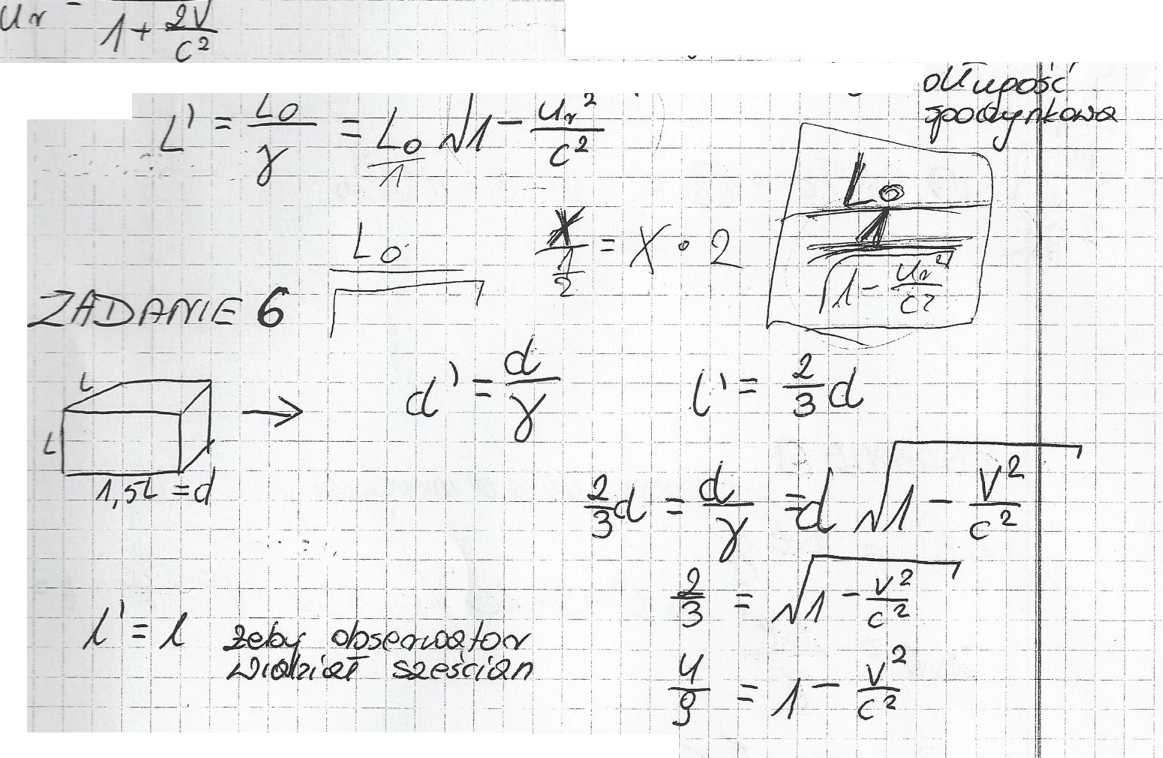 u_r = 1 + 2V/c²
długość
spoczynkowa
L' = L₀/γ = L₀/1 √1 - u_r²/c²
L₀
x/(1/2) = x · 2
L₀
1
√1 - u_r²/c²
ZADANIE 6
L
L
1,5L = d
d' = d/γ
l' = 2/3 d
2/3 d = d/γ = d √1 - V²/c²
2/3 = √1 - V²/c²
l' = l żeby obserwator
widział sześcian
4/9 = 1 - V²/c²